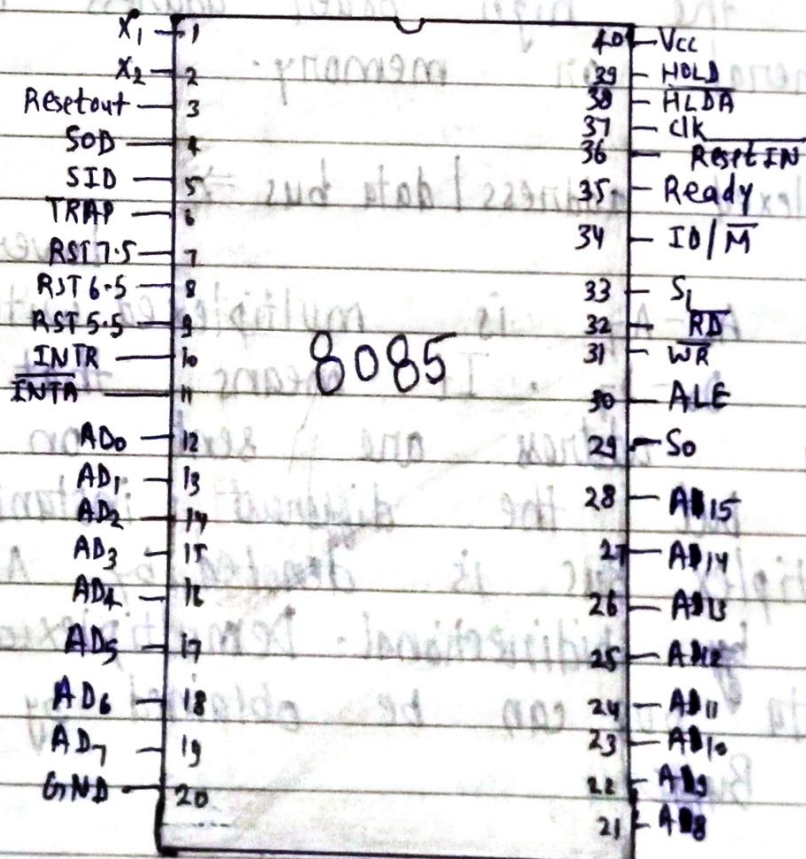 X1 1
X2 2
Resetout 3
SOD 4
SID 5
TRAP 6
RST 7.5 7
RST 6.5 8
RST 5.5 9
INTR 10
I̅N̅T̅A̅ 11
AD0 12
AD1 13
AD2 14
AD3 15
AD4 16
AD5 17
AD6 18
AD7 19
GND 20
8085
40 Vcc
39 HOLD
38 H̅L̅D̅A̅
37 Clk
36 R̅e̅s̅e̅t̅ I̅N̅
35 Ready
34 IO/M̅
33 S1
32 R̅D̅
31 W̅R̅
30 ALE
29 S0
28 A15
27 A14
26 A13
25 A12
24 A11
23 A10
22 A9
21 A8